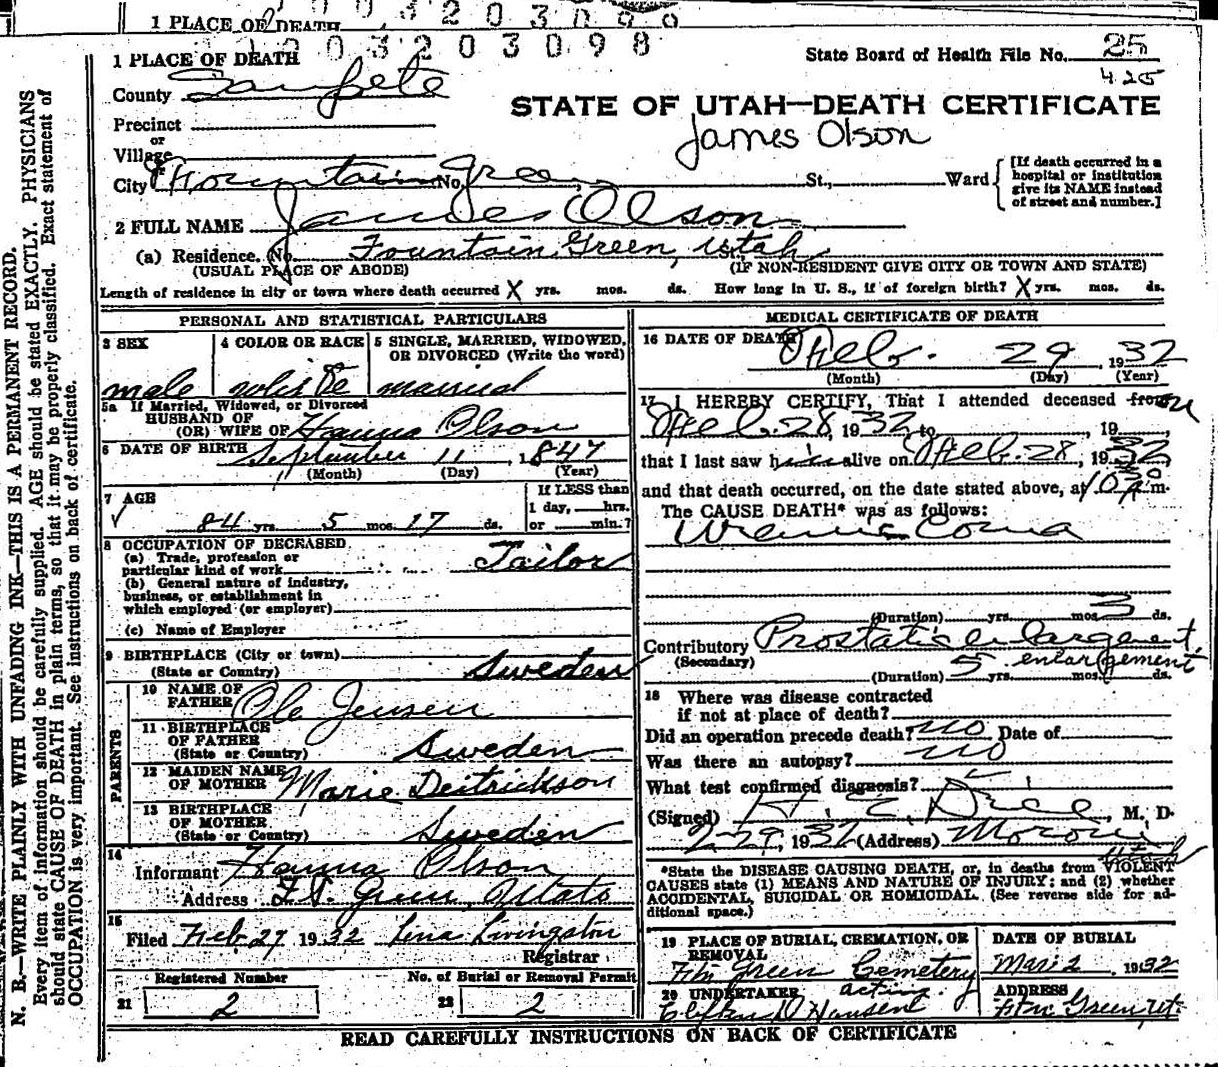 1 PLACE OF DEATH
0 3 2 0 3 0 9 8
1 PLACE OF DEATH
State Board of Health File No. 25
425
County Sanpete
STATE OF UTAH—DEATH CERTIFICATE
James Olson
Precinct
or
Village
City Fountain Green No. St., Ward
[If death occurred in a
hospital or institution
give its NAME instead
of street and number.]
2 FULL NAME James Olson
(a) Residence. No. Fountain Green, Utah St.
(USUAL PLACE OF ABODE) (IF NON-RESIDENT GIVE CITY OR TOWN AND STATE)
Length of residence in city or town where death occurred X yrs. mos. ds. How long in U. S., if of foreign birth? X yrs. mos. ds.
PERSONAL AND STATISTICAL PARTICULARS
3 SEX
male
4 COLOR OR RACE
white
5 SINGLE, MARRIED, WIDOWED,
OR DIVORCED (Write the word)
married
5a If Married, Widowed, or Divorced
HUSBAND OF
(OR) WIFE OF Hanna Olson
6 DATE OF BIRTH September 11, 1847
(Month) (Day) (Year)
7 AGE
84 yrs. 5 mos. 17 ds.
If LESS than
1 day, hrs.
or min.?
8 OCCUPATION OF DECEASED
(a) Trade, profession or
particular kind of work Tailor
(b) General nature of industry,
business, or establishment in
which employed (or employer)
(c) Name of Employer
9 BIRTHPLACE (City or town)
(State or Country) Sweden
PARENTS
10 NAME OF
FATHER Ole Jensen
11 BIRTHPLACE
OF FATHER
(State or Country) Sweden
12 MAIDEN NAME
OF MOTHER Marie Deitrickson
13 BIRTHPLACE
OF MOTHER
(State or Country) Sweden
14
Informant Hanna Olson
Address Ft. Green, Utah
15
Filed Feb 27 1932 Lena Livingston
Registrar
Registered Number No. of Burial or Removal Permit
21 2 22 2
MEDICAL CERTIFICATE OF DEATH
16 DATE OF DEATH Feb. 29, 1932
(Month) (Day) (Year)
17 I HEREBY CERTIFY, That I attended deceased from on
Feb. 28, 1932 to , 19
that I last saw him alive on Feb. 28, 1932
and that death occurred, on the date stated above, at 10 30 A m.
The CAUSE DEATH* was as follows:
Uremic Coma
(Duration) yrs. mos. 3 ds.
Contributory Prostatic enlargement
(Secondary) enlargement
(Duration) 5 yrs. mos. ds.
18 Where was disease contracted
if not at place of death?
Did an operation precede death? no Date of
Was there an autopsy? no
What test confirmed diagnosis?
(Signed) H. E. Dice, M. D.
2-29, 1932 (Address) Moroni
Utah
*State the DISEASE CAUSING DEATH, or, in deaths from VIOLENT
CAUSES state (1) MEANS AND NATURE OF INJURY; and (2) whether
ACCIDENTAL, SUICIDAL OR HOMICIDAL. (See reverse side for ad-
ditional space.)
19 PLACE OF BURIAL, CREMATION, OR
REMOVAL
Ftn Green Cemetery
DATE OF BURIAL
Mar. 2, 1932
20 UNDERTAKER acting.
Clifton D Hansen
ADDRESS
Ftn Green, Ut.
READ CAREFULLY INSTRUCTIONS ON BACK OF CERTIFICATE
N. B.—WRITE PLAINLY WITH UNFADING INK—THIS IS A PERMANENT RECORD.
Every item of information should be carefully supplied. AGE should be stated EXACTLY. PHYSICIANS
should state CAUSE OF DEATH in plain terms, so that it may be properly classified. Exact statement of
OCCUPATION is very important. See instructions on back of certificate.